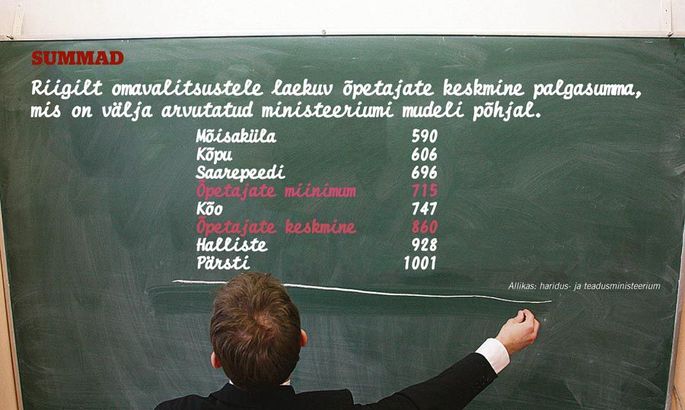 SUMMAD
Riigilt omavalitsustele laekuv õpetajate keskmine palgasumma,
mis on välja arvutatud ministeeriumi mudeli põhjal.
Mõisaküla 590
Kõpu 606
Saarepeedi 696
Õpetajate miinimum 715
Kõo 747
Õpetajate keskmine 860
Halliste 928
Pärsti 1001
Allikas: haridus- ja teadusministeerium